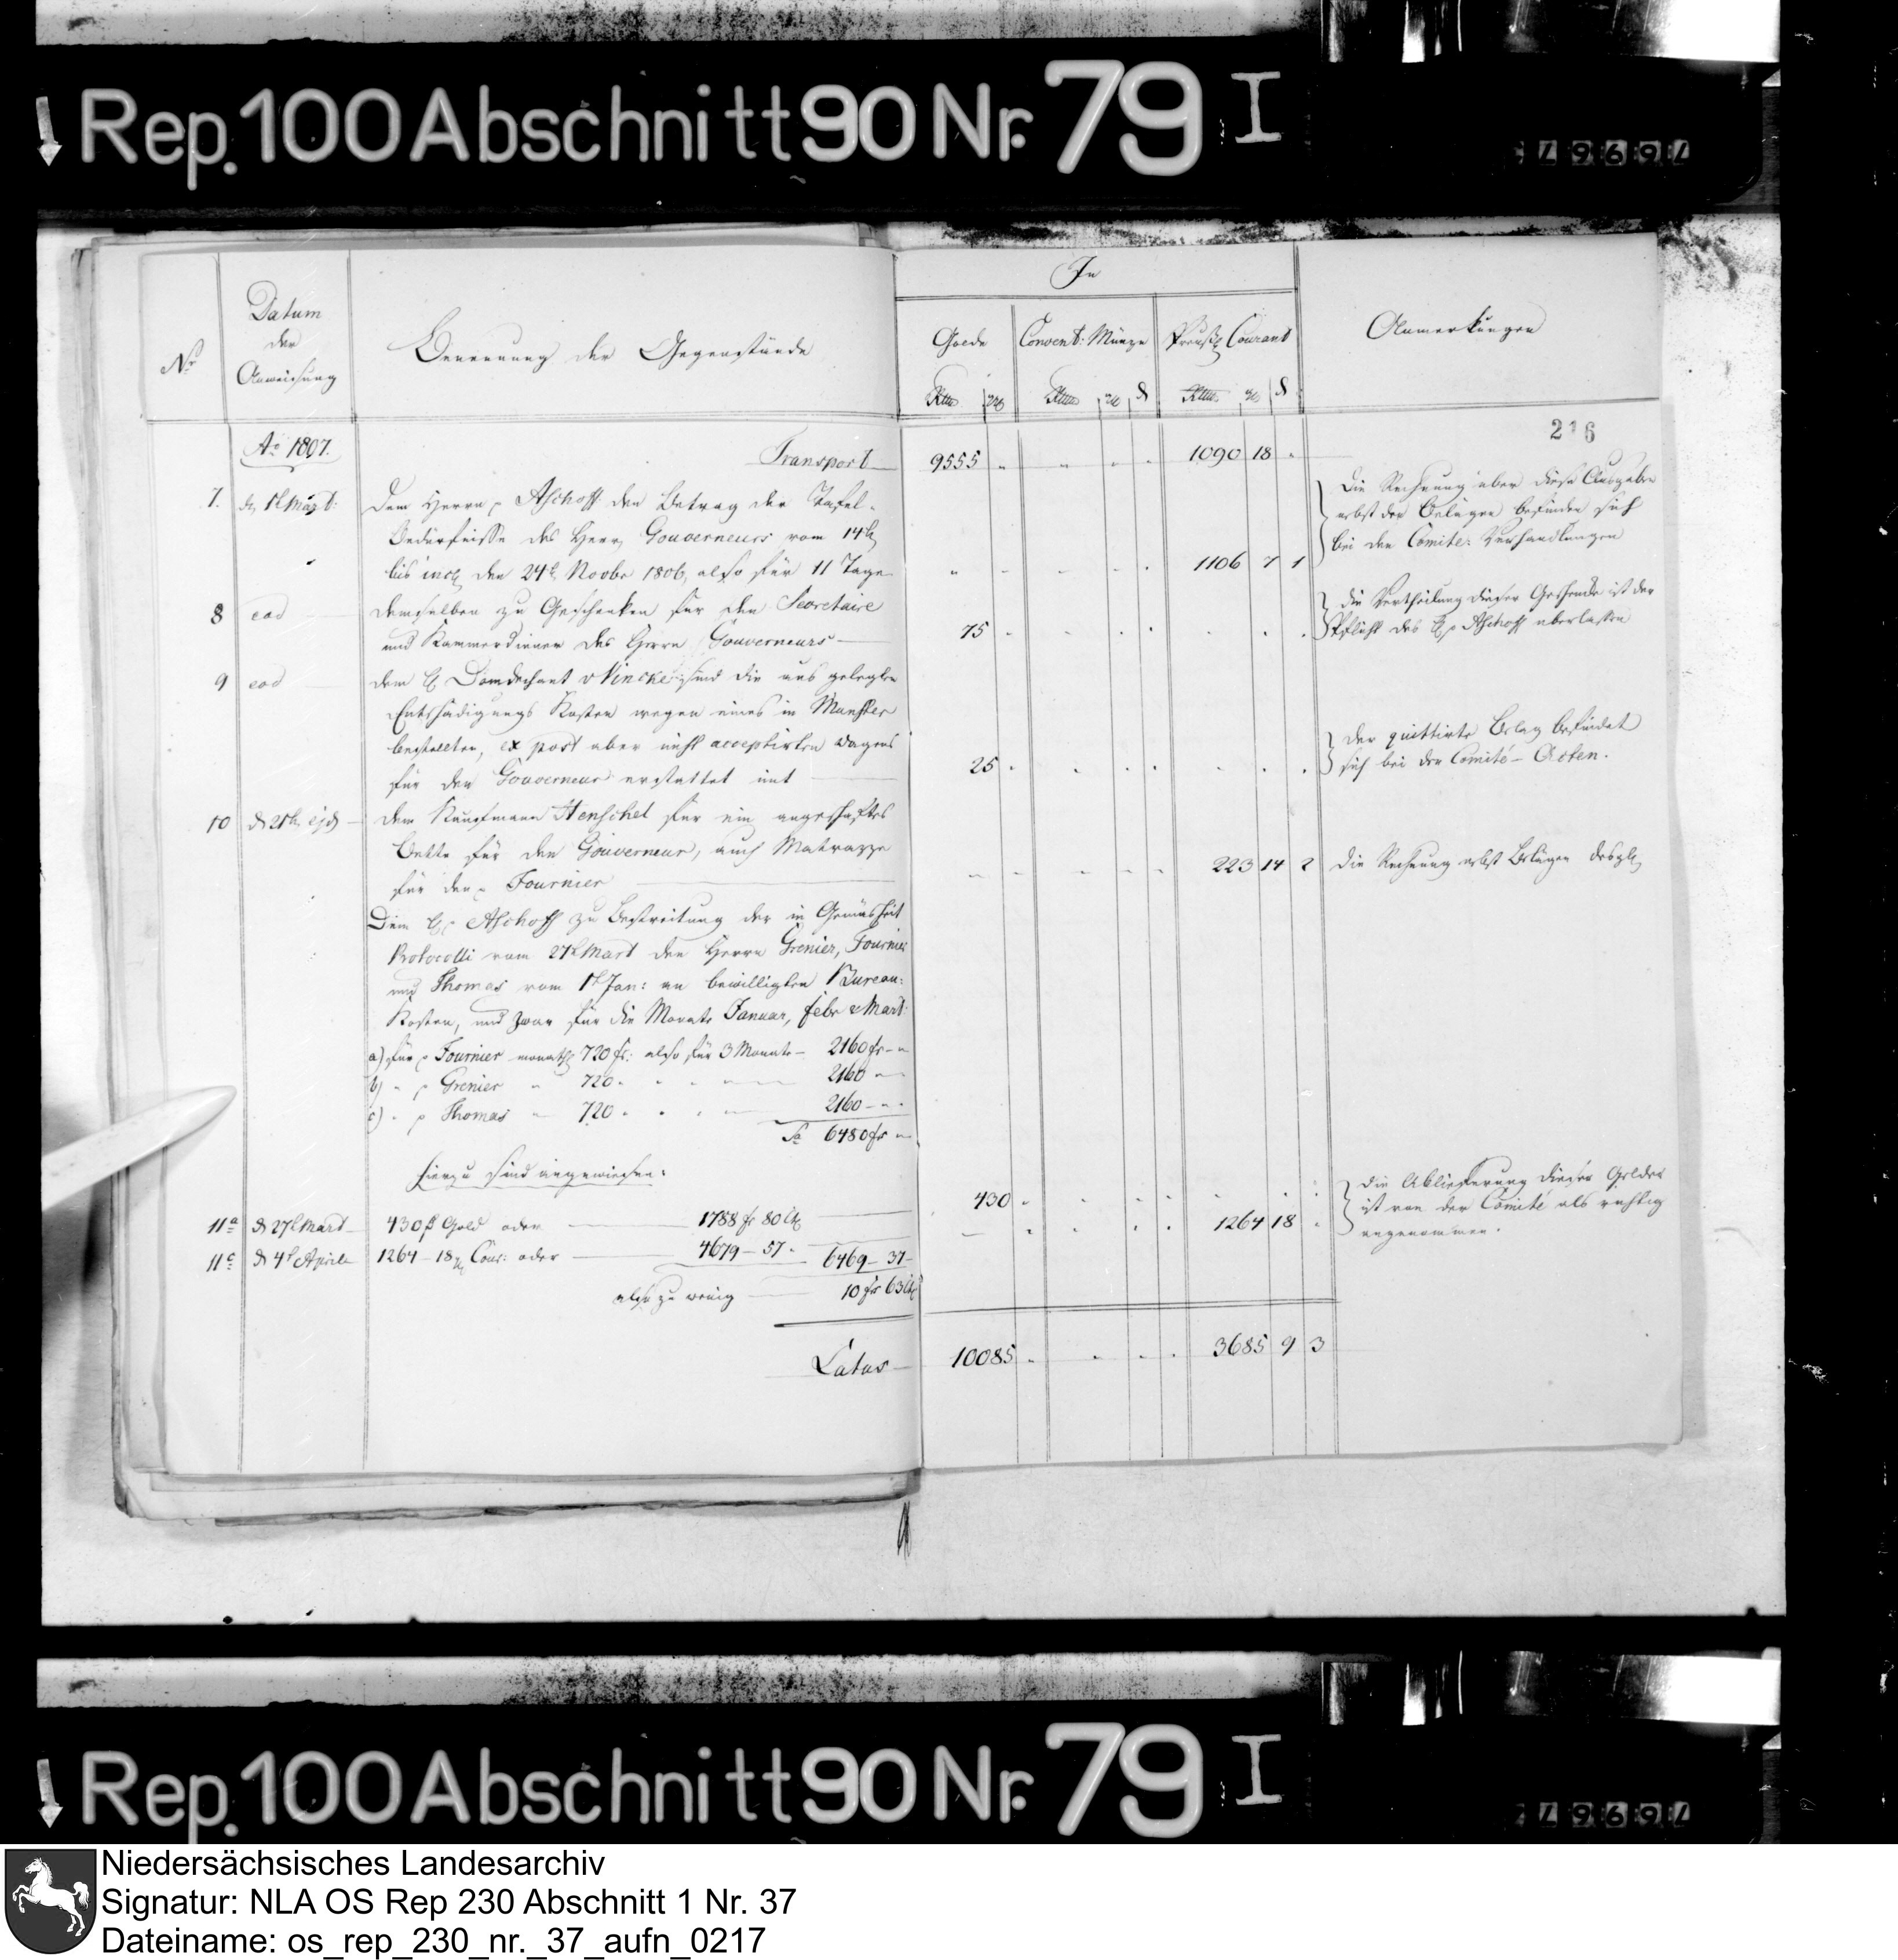 Rep. 100 Abschnitt 90 Nr. 79 I
79697
No
Datum
der
Anweisung
Benennung der Gegenstände
In
Golde
Convent: Münze
Preuß Courant
Anmerkungen
216
Ao 1807.
Transport 9555 1090 18
7. d 1t Mart: Dem Herrn p Aschoff den Betrag der Tafel-
Bedürfnisse des Herrn Gouverneurs vom 14t
bis incl den 24t Novbr 1806, also für 11 Tage 1106 7 1
Die Rechnung über diese Ausgabe
nebst den Belägen befinden sich
bei den Comité: Verhandlungen
8 eod demselben zu Geschenken für den Secretaire
und Kammerdiener des Herrn Gouverneurs 75
die Vertheilung dieser Geschenke ist der
Pflicht des H p Aschoff überlassen
9 eod dem H Domdechant v Vincke sind die ausgelegten
Entschädigungs Kosten wegen eines in Münster
bestellten, ex post aber nicht acceptirten Wagens
für den Gouverneur erstattet mit 25
der quittirte Belag befindet
sich bei den Comité-Acten.
10 d 21t ejd dem Kaufmann Henschel für ein angeschaftes
Bette für den Gouverneur, auch Matrazze
für den p Fournier 223 14 2
die Rechnung nebst Belägen desgl
Dem H p Aschoff zu Bestreitung der in Gemäsheit
Protocolli vom 27t Mart den Herrn Grenier, Fournier
und Thomas vom 1t Jan: an bewilligten Bureau:
Kosten, und zwar für die Monate Januar, febr & Mart:
a) für p Fournier monatl 720 fr: also für 3 Monate - 2160 fr -
b) " p Grenier " 720 " 2160 -
c) " p Thomas " 720 " 2160 -
Sa 6480 fr
hierzu sind angewiesen:
11a d 27t Mart 430 Gold oder 1788 fr 80 430
11c d 4t Aprile 1264 - 18 Cour: oder 4679 - 57 - 6469 - 37 - 1264 18
die Ablieferung dieser Gelder
ist von der Comité als richtig
angenommen.
also zu wenig 10 fr 63
Latus 10085 3685 9 3
Rep. 100 Abschnitt 90 Nr. 79 I
79697
Niedersächsisches Landesarchiv
Signatur: NLA OS Rep 230 Abschnitt 1 Nr. 37
Dateiname: os_rep_230_nr._37_aufn_0217